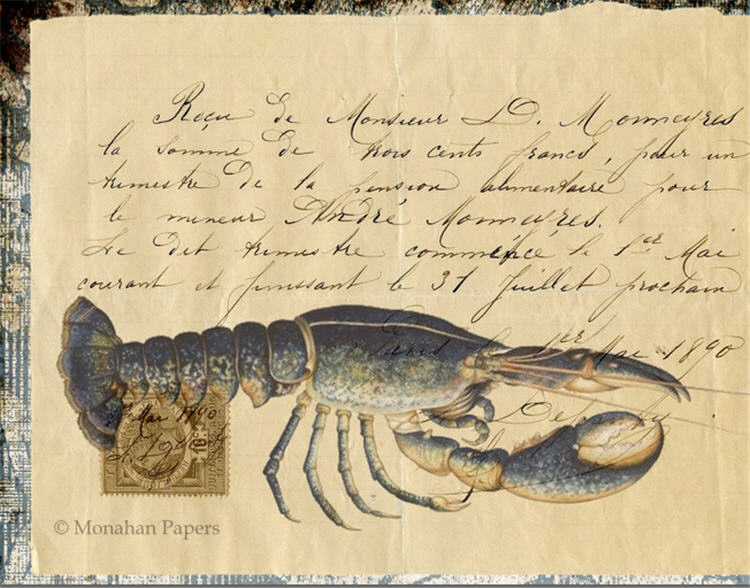 Reçu de Monsieur D. Monneyres
la somme de trois cents francs, pour un
trimestre de la pension alimentaire pour
le mineur André Monneyres.
Le dit trimestre commence le 1er Mai
courant et finissant le 31 Juillet prochain
Paris le 1er Mai 1890
Mai 1890
© Monahan Papers